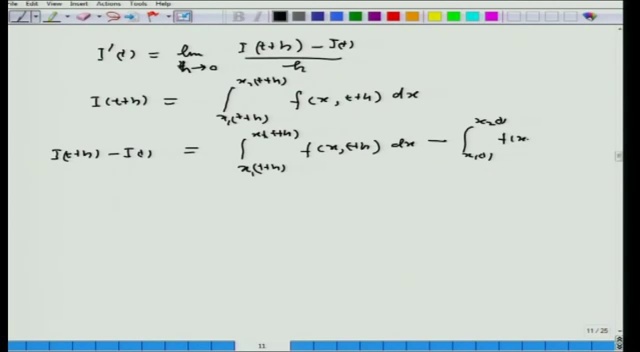 File Edit View Insert Actions Tools Help
I'(t) = lim h→0 I(t+h) - I(t) / h
I(t+h) = ∫_{x₁(t+h)}^{x₂(t+h)} f(x, t+h) dx
I(t+h) - I(t) = ∫_{x₁(t+h)}^{x₂(t+h)} f(x, t+h) dx - ∫_{x₁(t)}^{x₂(t)} f(x
11 / 25
11